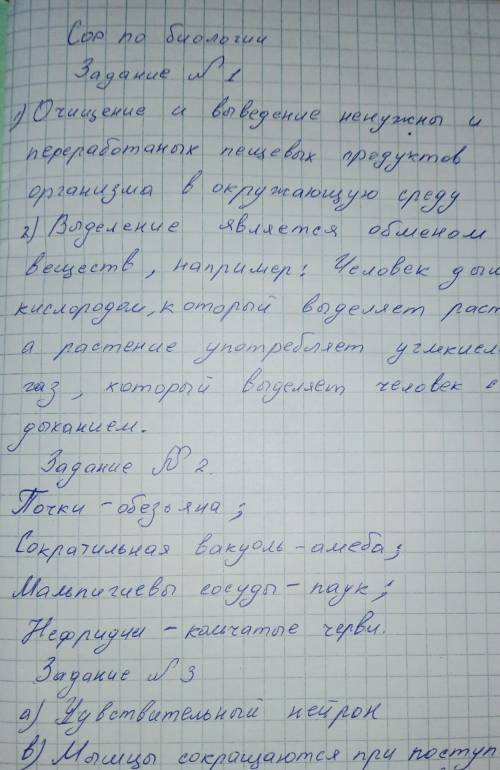 Сор по биологии
Задание №1
1) Очищение и выведение ненужны и
переработаных пещевых продуктов
организма в окружающую среду
2) Выделение является обменом
веществ, например: Человек ды
кислородом, который выделяет раст
а растение употребляет углкисл
газ, который выделяет человек с
дыханием.
Задание №2.
Почки - обезьяна;
Сократильная вакуоль - амеба;
Мальпигиевы сосуды - паук;
Нефридии - кольчатые черви.
Задание №3
а) Чувствительный нейрон
в) Мышцы сокращаются при поступ